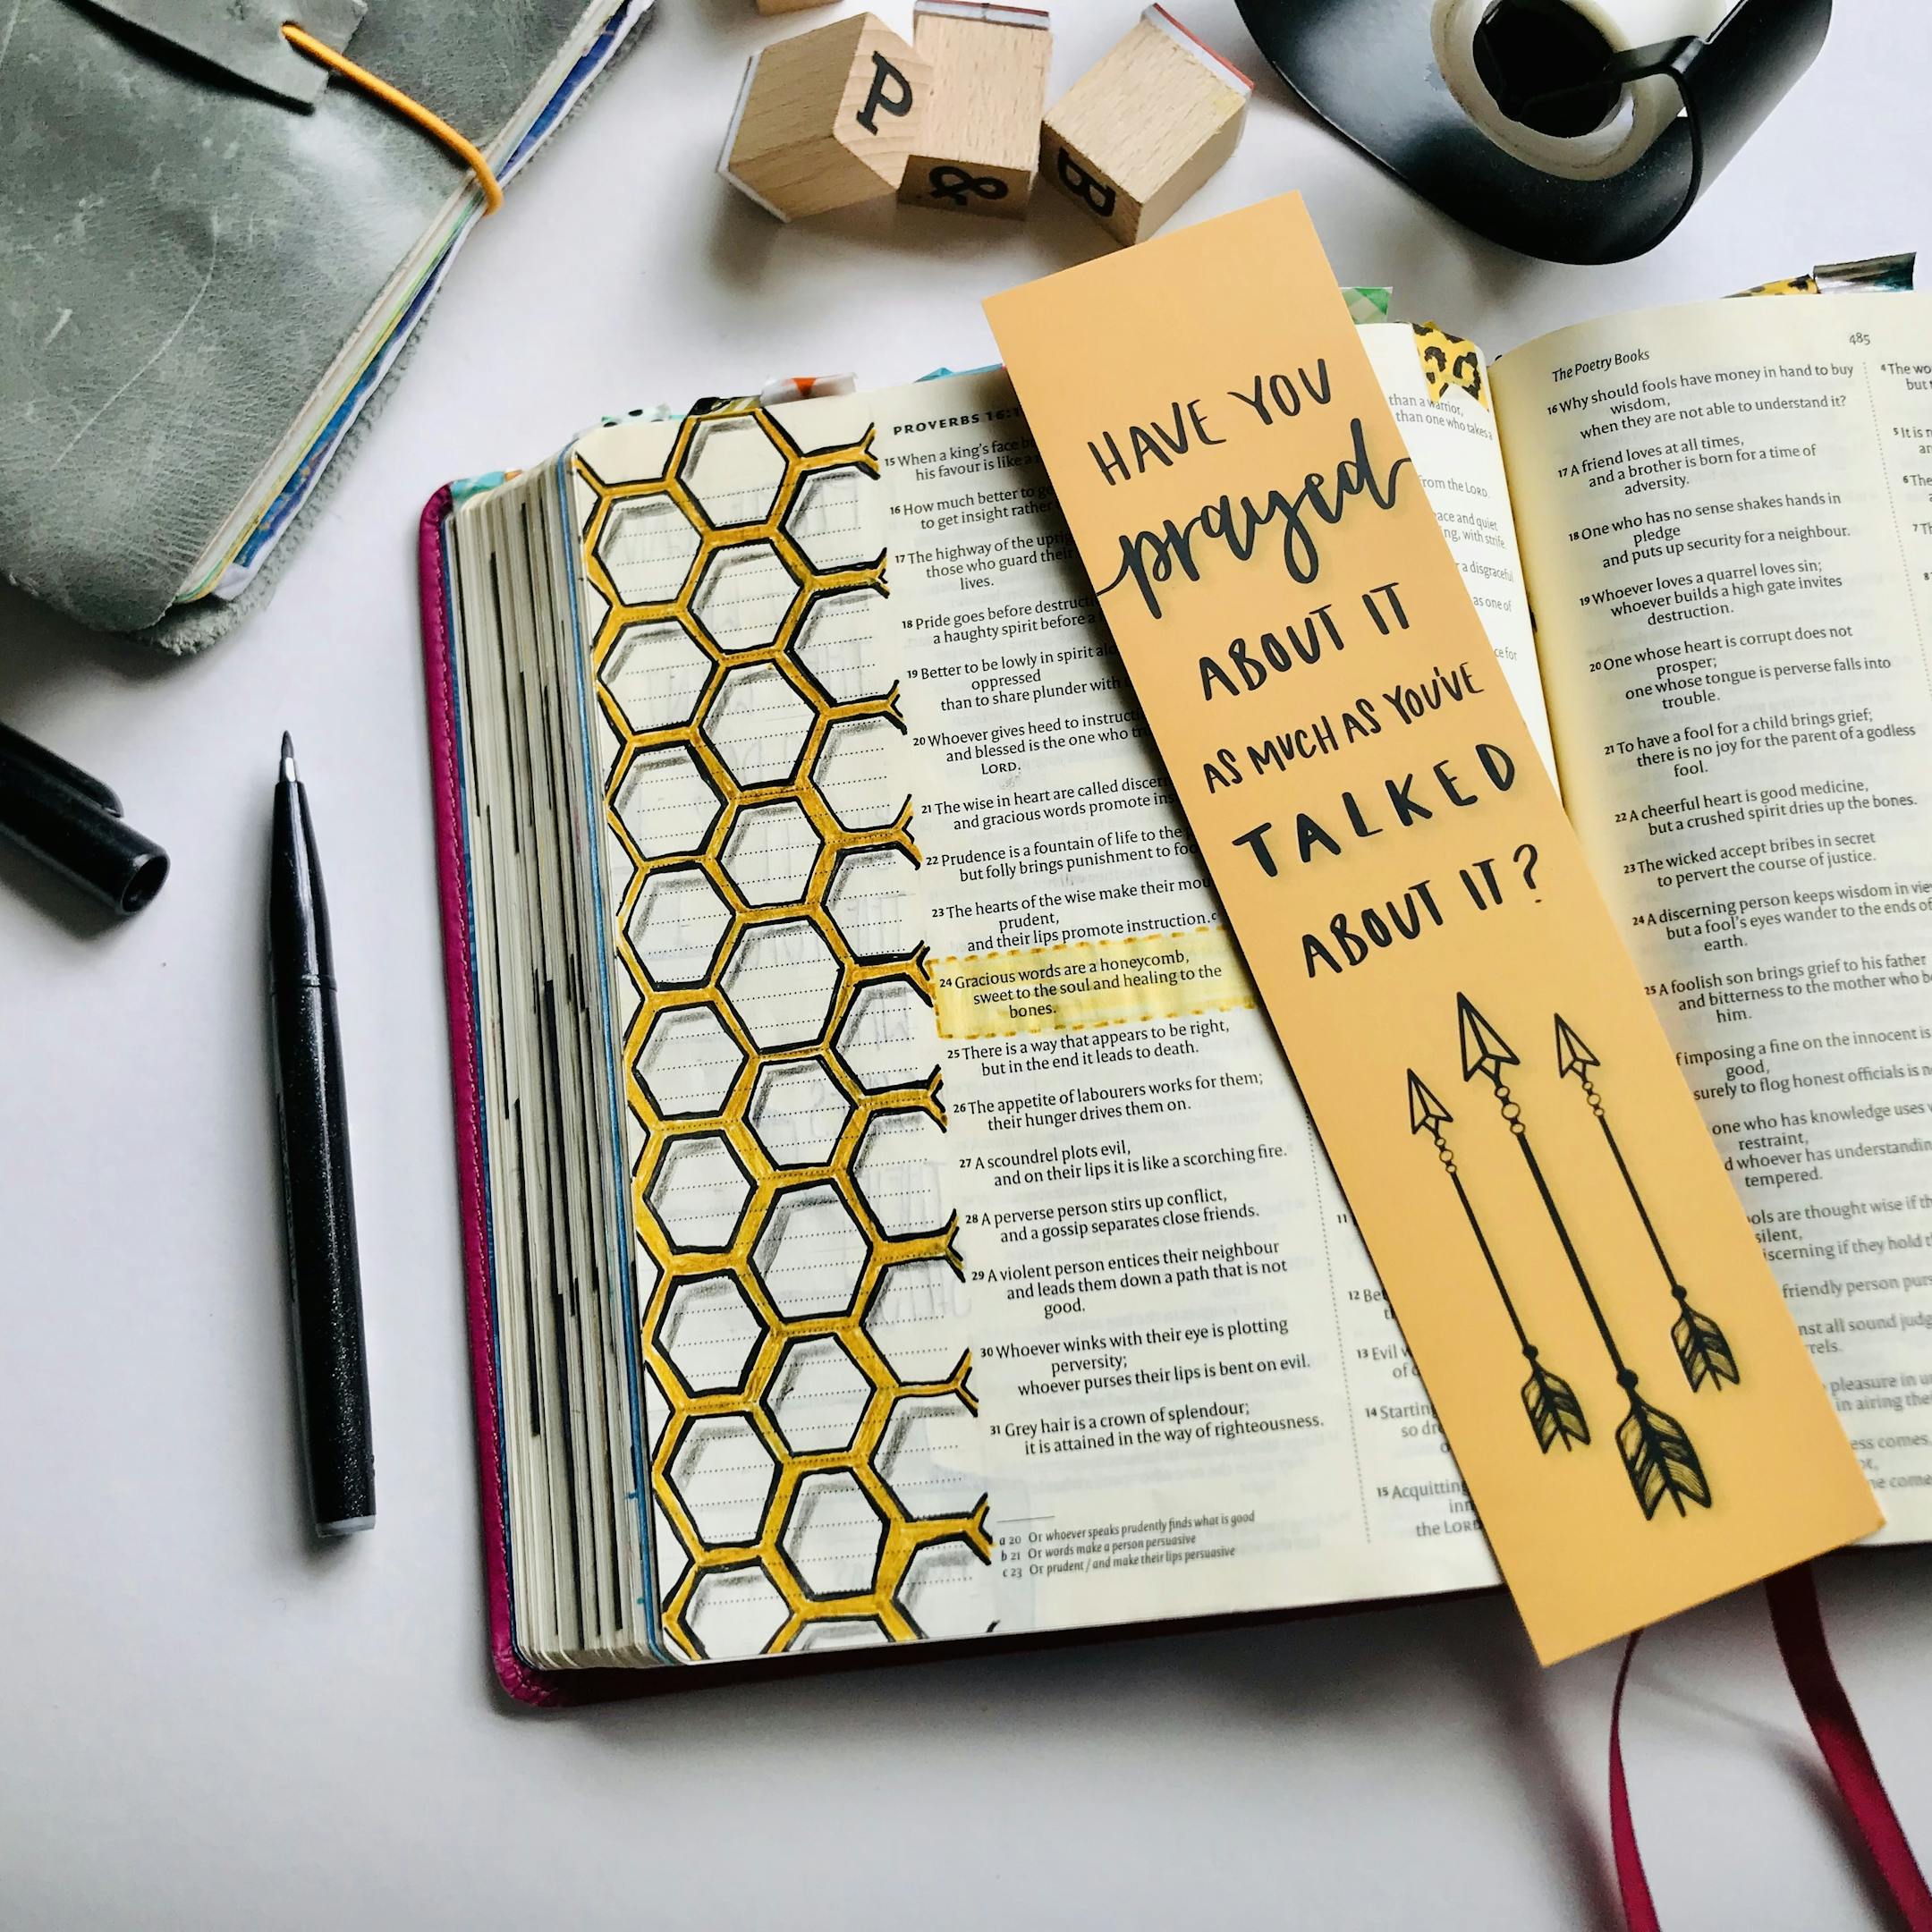 P
&
B
HAVE YOU
prayed
ABOUT IT
AS MUCH AS YOU'VE
TALKED
ABOUT IT?
PROVERBS 16:1
15 When a king's face
his favour is like a
16 How much better to
to get insight rather
17 The highway of the
those who guard their
lives.
18 Pride goes before
a haughty spirit before a
19 Better to be lowly in spirit
oppressed
than to share plunder with
20 Whoever gives heed to
and blessed is the one who
LORD.
21 The wise in heart are called
and gracious words promote
22 Prudence is a fountain of life to the
but folly brings punishment to
23 The hearts of the wise make their
prudent,
and their lips promote instruction.c
24 Gracious words are a honeycomb,
sweet to the soul and healing to the
bones.
25 There is a way that appears to be right,
but in the end it leads to death.
26 The appetite of labourers works for them;
their hunger drives them on.
27 A scoundrel plots evil,
and on their lips it is like a scorching fire.
28 A perverse person stirs up conflict,
and a gossip separates close friends.
29 A violent person entices their neighbour
and leads them down a path that is not
good.
30 Whoever winks with their eye is plotting
perversity;
whoever purses their lips is bent on evil.
31 Grey hair is a crown of splendour;
it is attained in the way of righteousness.
a 20 Or whoever speaks prudently finds what is good
b 21 Or words make a person persuasive
c 23 Or prudent / and make their lips persuasive
than a warrior,
than one who takes a
from the LORD.
and quiet
with strife.
a disgraceful
as one of
for
11
12
13 Evil
of
14
so
15 Acquitting
the LORD
The Poetry Books
485
16 Why should fools have money in hand to buy
wisdom,
when they are not able to understand it?
17 A friend loves at all times,
and a brother is born for a time of
adversity.
18 One who has no sense shakes hands in
pledge
and puts up security for a neighbour.
19 Whoever loves a quarrel loves sin;
whoever builds a high gate invites
destruction.
20 One whose heart is corrupt does not
prosper;
one whose tongue is perverse falls into
trouble.
21 To have a fool for a child brings grief;
there is no joy for the parent of a godless
fool.
22 A cheerful heart is good medicine,
but a crushed spirit dries up the bones.
23 The wicked accept bribes in secret
to pervert the course of justice.
24 A discerning person keeps wisdom in
but a fool's eyes wander to the ends of
earth.
25 A foolish son brings grief to his father
and bitterness to the mother who
him.
imposing a fine on the innocent is
good,
surely to flog honest officials is
one who has knowledge uses
restraint,
whoever has understanding
tempered.
are thought wise if
silent,
if they hold
friendly person
all sound
pleasure in
in airing
comes
4 The
but
5 It is
6 The
7